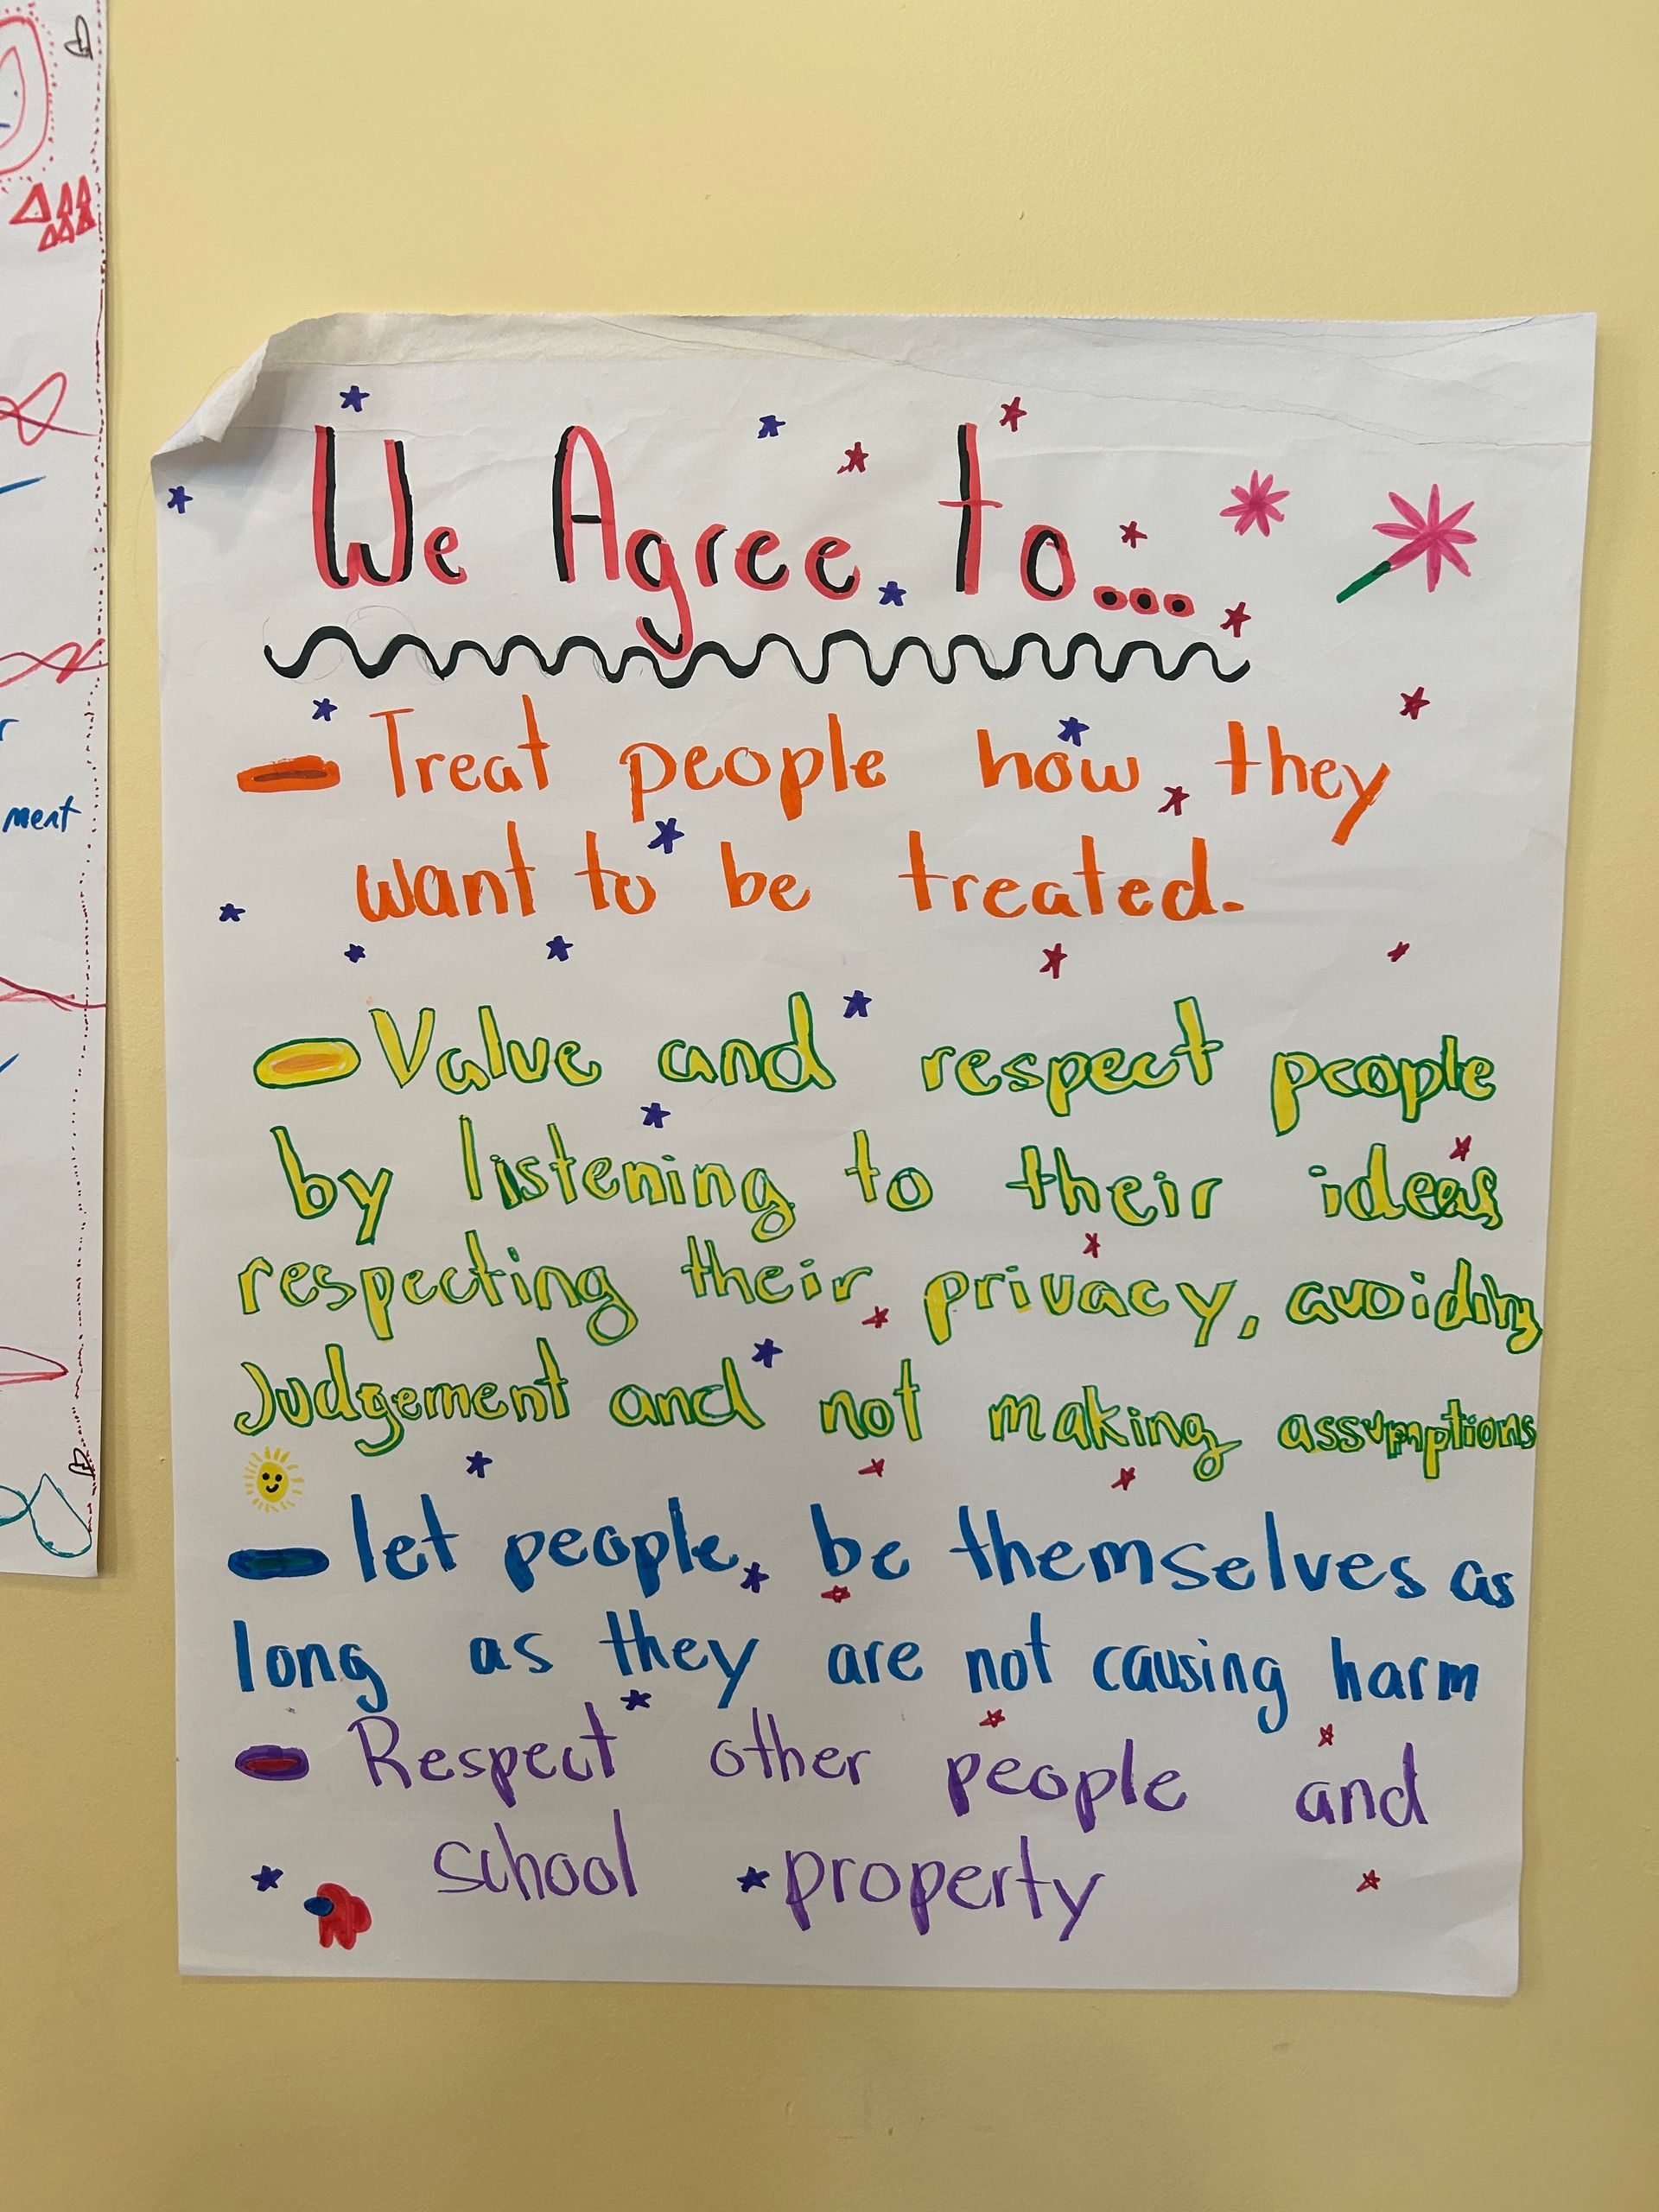 We Agree to...
- Treat people how they
want to be treated.
- Value and respect people
by listening to their ideas
respecting their privacy, avoiding
Judgement and not making assumptions
- let people be themselves as
long as they are not causing harm
- Respect other people and
school property
ment